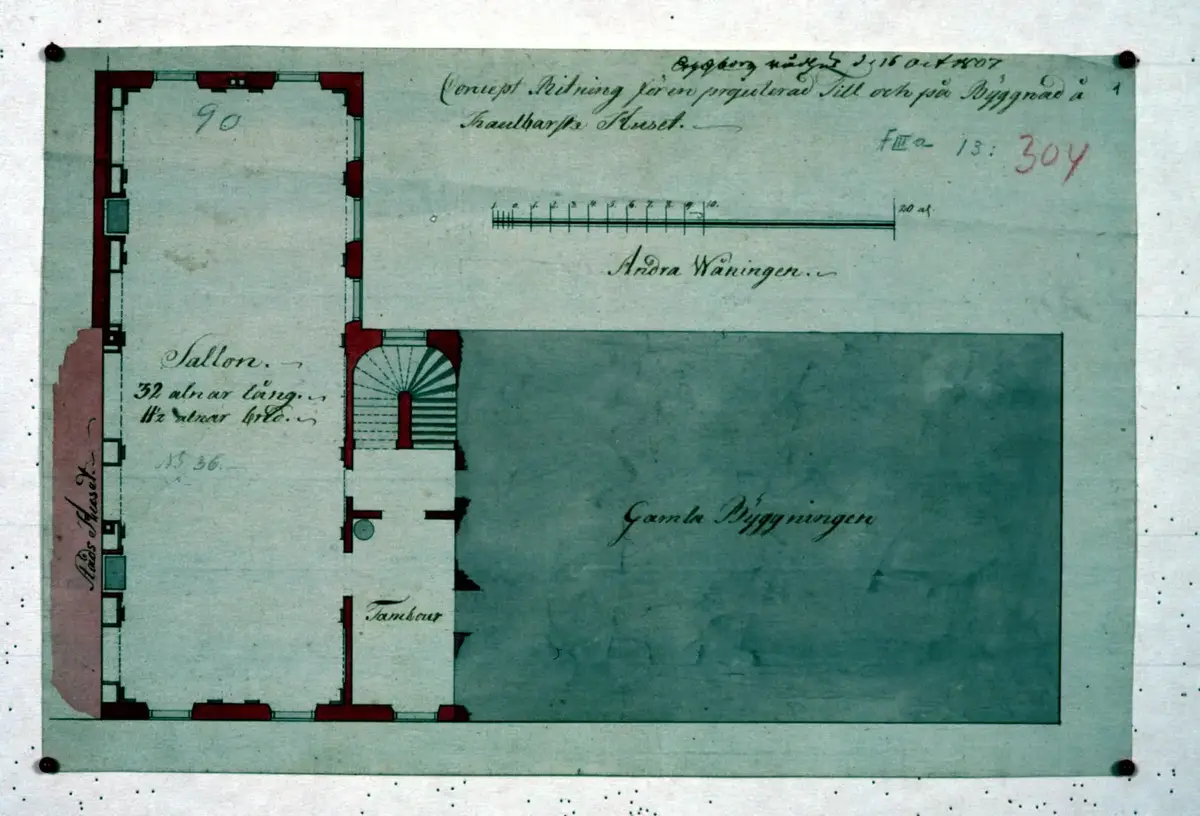 d. 16 Oct 1807
Concept Ritning för en projecterad Till och på Byggnad å
Huset.
1
FIIIa 13: 304
90
1 0 1 2 3 4 5 6 7 8 9 10. 20 al.
Andra Wåningen.
Sallon.
32 alnar lång.
11½ alnar bred.
N: 36.
Råds Huset.
Gamla Byggningen
Tambour